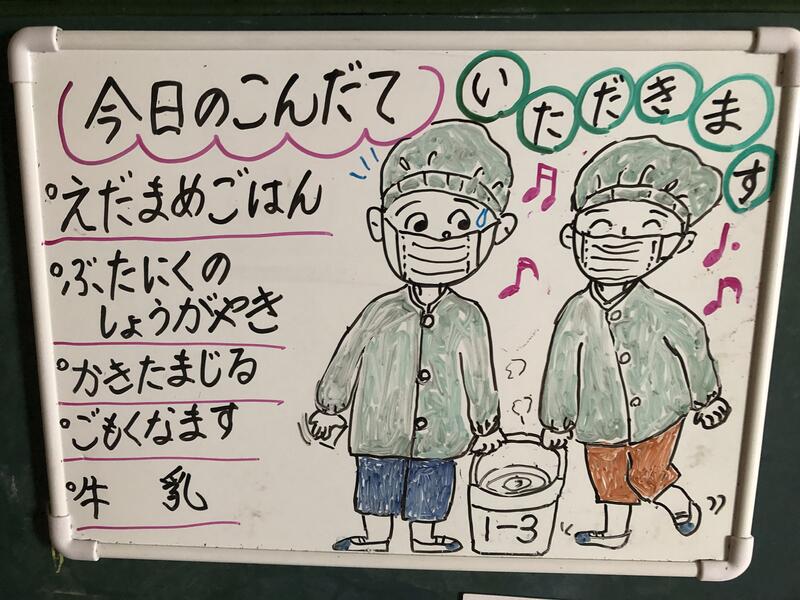 今日のこんだて
いただきます
°えだまめごはん
°ぶたにくの
しょうがやき
°かきたまじる
°ごもくなます
°牛 乳
1-3